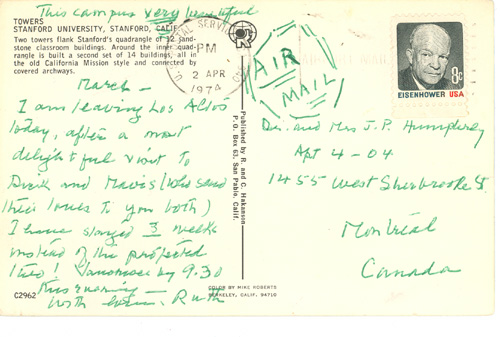 This campus very beautiful
TOWERS
STANFORD UNIVERSITY, STANFORD, CALIF.
Two towers flank Stanford's quadrangle of 12 sand-
stone classroom buildings. Around the inner quad-
rangle is built a second set of 14 buildings, all in
the old California Mission style and connected by
covered archways.
March —
I am leaving Los Altos
today, after a most
delightful visit to
Dick and Mavis (who send
their loves to you both)
I have stayed 3 weeks
instead of the projected
two! Vancouver by 9.30
this evening —
With love. Ruth
C2962
Published by R. and C. Hakanson
P. O. Box 63, San Pablo, Calif.
COLOR BY MIKE ROBERTS
BERKELEY, CALIF. 94710
PM
2 APR
1974
AIR
MAIL
8¢
EISENHOWER USA
Dr. and Mrs J.P. Humphrey
Apt 4-04
1455 West Sherbrooke St
Montréal
Canada